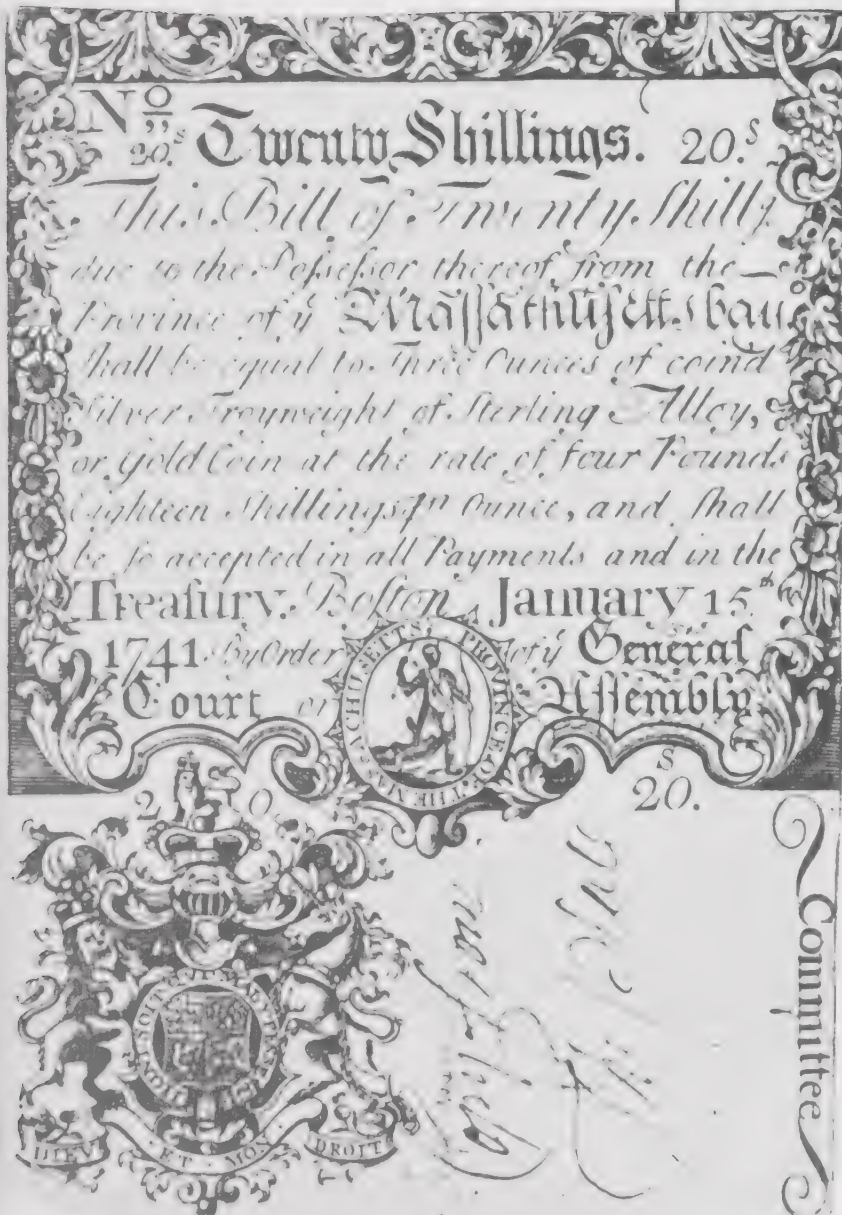 No
20.s Twenty Shillings. 20.s
This Bill of Twenty Shills
due to the Possessor thereof from the
Province of ye Massachusetts bay
Shall be equal to Three Ounces of coind
Silver Troyweight of Sterling Alloy,
or Gold Coin at the rate of four Pounds
Eighteen Shillings pr Ounce, and shall
be so accepted in all Payments and in the
Treasury. Boston January 15th
1741 by Order of ye General
Court or Assembly
MASSACHUSETTS PROVINCE OF THE
2 10
20.s
Committee
HONI SOIT QUI MAL Y PENSE
DIEV ET MON DROIT